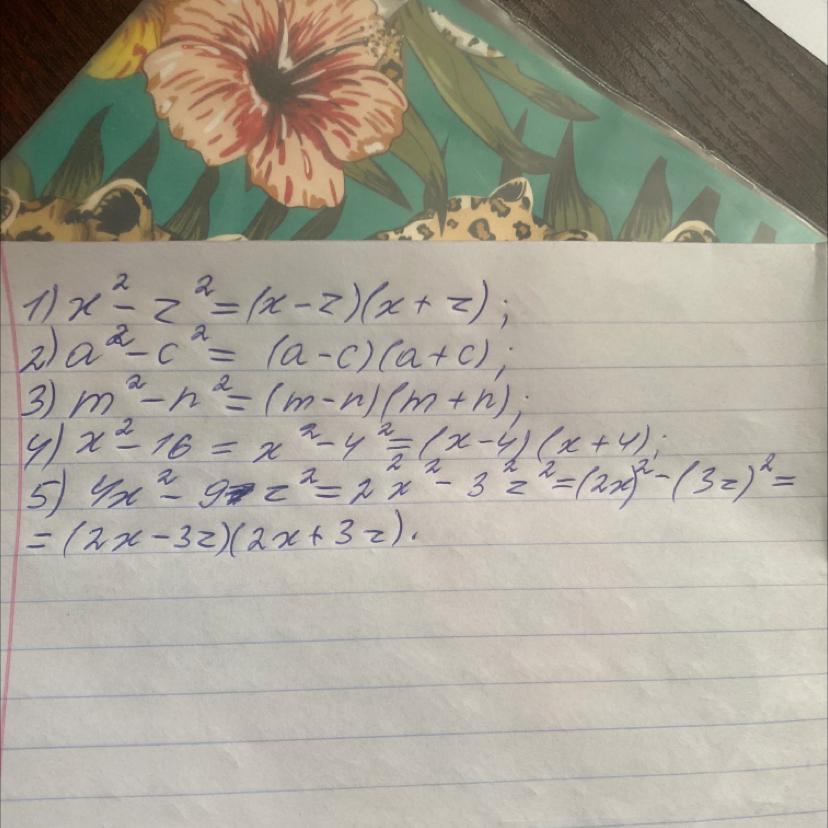 1) x² - z² = (x - z)(x + z);
2) a² - c² = (a - c)(a + c);
3) m² - n² = (m - n)(m + n);
4) x² - 16 = x² - 4² = (x - 4)(x + 4);
5) 4x² - 9z² = 2²x² - 3²z² = (2x)² - (3z)² =
= (2x - 3z)(2x + 3z).